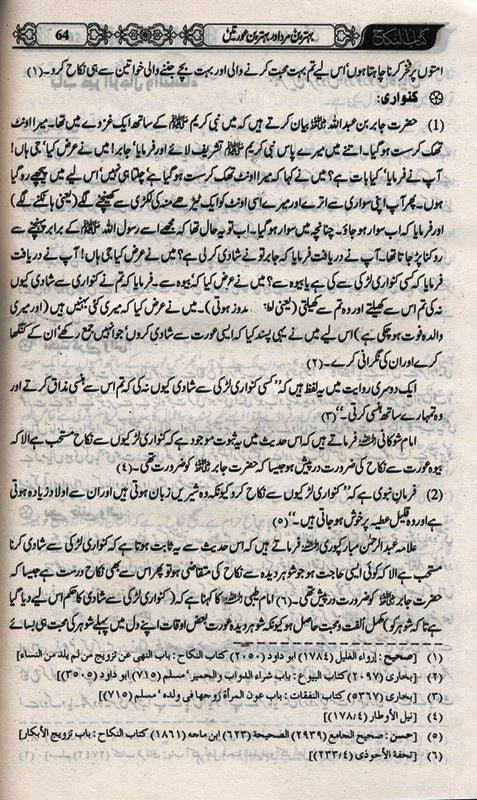 کتاب النکاح
بہترین مرد اور بہترین عورتیں
64
امتوں پر فخر کرنا چاہتا ہوں‘ اس لیے تم بہت محبت کرنے والی اور بہت بچے جننے والی خواتین سے ہی نکاح کرو۔ (۱)
کنواری:
(1) حضرت جابر بن عبداللہ رضی اللہ عنہ بیان کرتے ہیں کہ میں نبی کریم ﷺ کے ساتھ ایک غزوے میں تھا۔ میرا اونٹ
تھک کر سست ہو گیا۔ اتنے میں میرے پاس نبی کریم ﷺ تشریف لائے اور فرمایا‘ جابر! میں نے عرض کیا‘ جی ہاں!
آپ نے فرمایا‘ کیا بات ہے؟ میں نے کہا کہ میرا اونٹ تھک کر سست ہو گیا ہے‘ چلتا ہی نہیں‘ اس لیے میں پیچھے رہ گیا
ہوں۔ پھر آپ اپنی سواری سے اترے اور میرے اسی اونٹ کو ایک ٹیڑھے منہ کی لکڑی سے کھینچنے لگے (یعنی ہانکنے لگے)
اور فرمایا کہ اب سوار ہو جاؤ۔ چنانچہ میں سوار ہو گیا۔ اب تو یہ حال تھا کہ مجھے اسے رسول اللہ ﷺ کے برابر پہنچنے سے
روکنا پڑ جاتا تھا۔ آپ نے دریافت فرمایا کہ جابر تو نے شادی کر لی ہے؟ میں نے عرض کیا جی ہاں! آپ نے دریافت
فرمایا کہ کسی کنواری لڑکی سے کی ہے یا بیوہ سے؟ میں نے عرض کیا کہ‘ بیوہ سے۔ فرمایا کہ تم نے کنواری سے کیوں
نہ کی تم اس سے کھیلتے اور وہ تم سے کھیلتی (یعنی لطف اندوز ہوتی)۔ میں نے عرض کیا کہ میری کئی بہنیں ہیں (اور میری
والدہ فوت ہو چکی ہے) اس لیے میں نے یہی پسند کیا کہ کسی ایسی عورت سے شادی کروں‘ جو انہیں جمع رکھے‘ ان کے کنگھا
کرے اور ان کی نگرانی کرے۔ (۲)
ایک دوسری روایت میں یہ لفظ ہیں کہ ”کسی کنواری لڑکی سے شادی کیوں نہ کی کہ تم اس سے ہنسی مذاق کرتے اور
وہ تمہارے ساتھ ہنسی کرتی۔“ (۳)
امام شوکانی رحمہ اللہ فرماتے ہیں کہ اس حدیث میں یہ ثبوت موجود ہے کہ کنواری لڑکیوں سے نکاح مستحب ہے الا کہ
بیوہ عورت سے نکاح کی ضرورت درپیش ہو جیسا کہ حضرت جابر رضی اللہ عنہ کو ضرورت تھی۔ (۴)
(2) فرمان نبوی ہے کہ ”کنواری لڑکیوں سے نکاح کرو کیونکہ وہ شیریں زبان ہوتی ہیں اور ان سے اولاد زیادہ ہوتی
ہے اور وہ قلیل عطیہ پر خوش ہو جاتی ہیں۔“ (۵)
علامہ عبدالرحمٰن مبارکپوری رحمہ اللہ فرماتے ہیں کہ اس حدیث سے یہ ثابت ہوتا ہے کہ کنواری لڑکی سے شادی کرنا
مستحب ہے الا کہ کوئی ایسی حاجت ہو جو شوہر دیدہ سے نکاح کی متقاضی ہو تو پھر اس سے بھی نکاح درست ہے جیسا کہ
حضرت جابر رضی اللہ عنہ کو ضرورت درپیش تھی۔ (۶) امام طیبی رحمہ اللہ کا کہنا ہے کہ (کنواری لڑکی سے شادی کا حکم اس لیے دیا گیا
ہے تاکہ شوہر کو) مکمل الفت و محبت حاصل ہو کیونکہ شوہر دیدہ عورت بعض اوقات اپنے دل میں پہلے شوہر کی محبت ہی بسائے
(۱) [صحیح : إرواء الغلیل (۱۷۸٤) ابو داود (۲۰۵۰) کتاب النکاح : باب النھی عن تزویج من لم یلد من النساء]
(۲) [بخاری (۲۰۹۷) کتاب البیوع : باب شراء الدواب والحمیر‘ مسلم (۷۱۵) ابو داود (۳۵۰۵)]
(۳) [بخاری (۵۳٦۷) کتاب النفقات : باب عون المرأة زوجھا فی ولدہ‘ مسلم (۷۱۵)]
(٤) [نیل الأوطار (۱۷۸/٤)]
(۵) [حسن : صحیح الجامع (۲۹۳۹) الصحیحة (٦۲۳) ابن ماجہ (۱۸٦۱) کتاب النکاح : باب تزویج الأبکار]
(٦) [تحفة الأحوذی (۲۳۳/٤)]